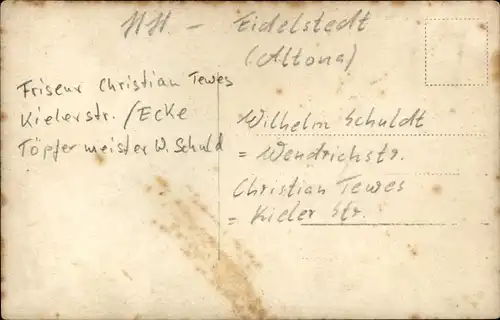 HH. - Eidelstedt
(Altona)
Friseur Christian Tewes
Kielerstr. / Ecke
Töpfermeister W. Schuld
Wilhelm Schuldt
= Wendrichstr.
Christian Tewes
= Kieler Str.